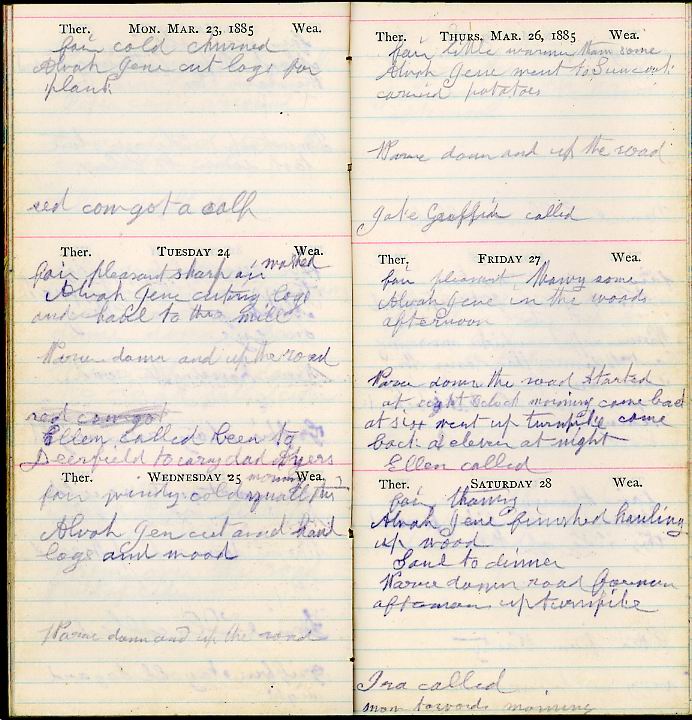 Ther. MON. MAR. 23, 1885 Wea.
fair cold churned
Alvah Gene cut logs for
plank
red cow got a calf
Ther. TUESDAY 24 Wea.
fair pleasant sharp air washed
Alvah Gene cuting logs
and to the mill
down and up the road
red cow got
Ellen called been to
Deerfield to cary dad
Ther. WEDNESDAY 25 Wea.
fair windy cold
Alvah Gen cut and
logs and wood
down and up the road
Ther. THURS. MAR. 26, 1885 Wea.
fair little warmer than some
Alvah Gene went to
carried potatoes
down and up the road
Jake called
Ther. FRIDAY 27 Wea.
fair pleasant thawy some
Alvah Gene in the woods
afternoon
down the road started
at eight oclock morning came back
at six went up turnpike come
back a eleven at night
Ellen called
Ther. SATURDAY 28 Wea.
fair thawy
Alvah Gene finished hauling
up wood
to dinner
down road
up turnpike
Ira called
towards morning